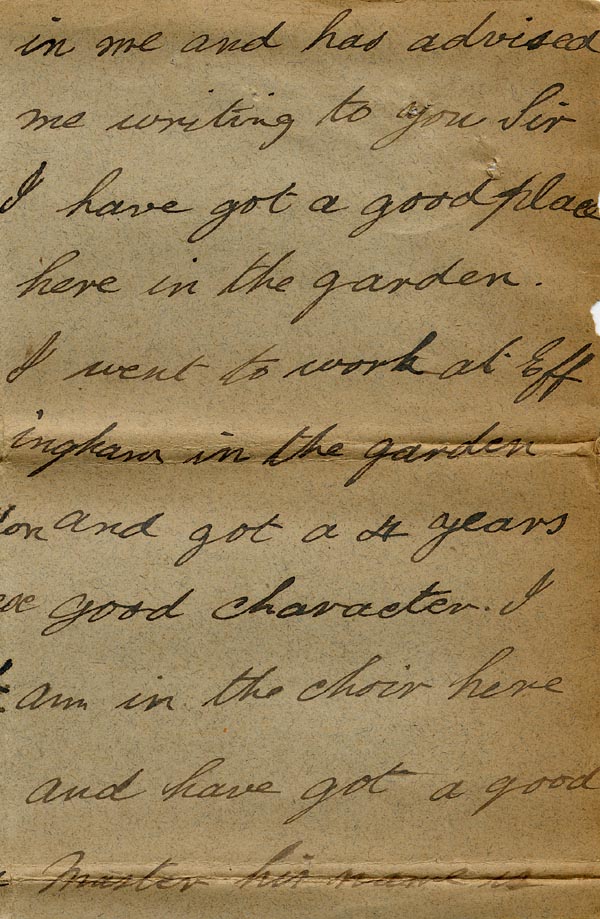 in me and has advised
me writing to you Sir
I have got a good place
here in the garden.
I went to work at Eff
ingham in the garden
and got a 4 years
good character. I
am in the choir here
and have got a good
Master his name is